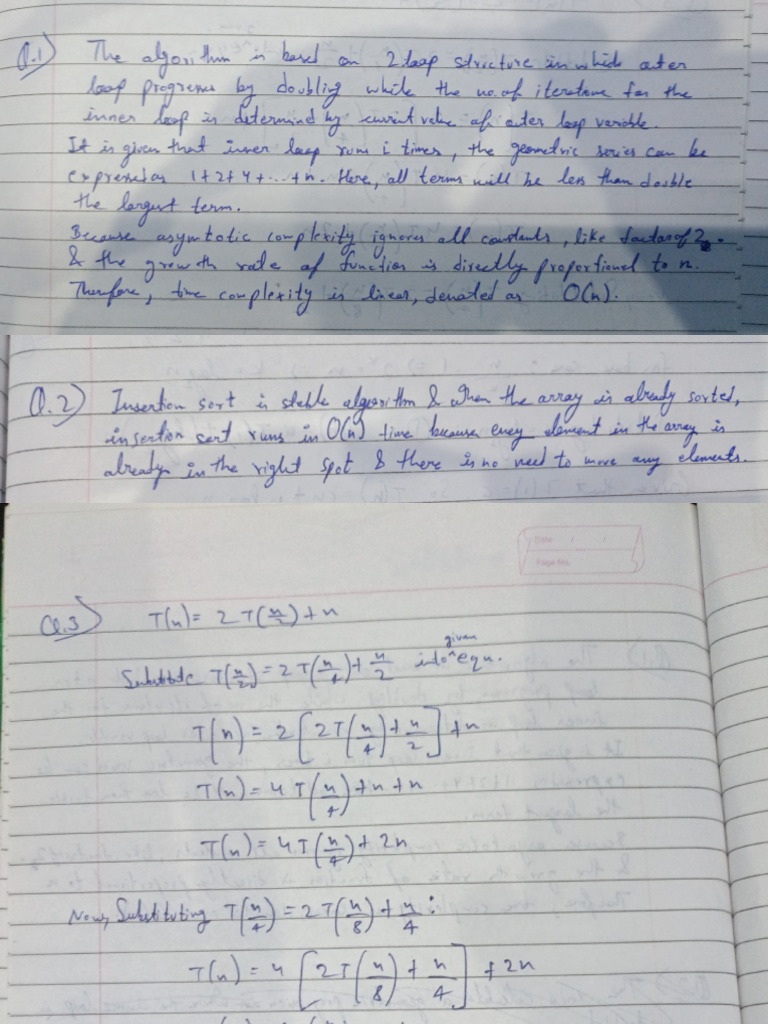 Q.1) The algorithm is based on 2 loop structure in which outer
loop progresses by doubling while the no. of iterations for the
inner loop is determind by current value of outer loop variable.
It is given that inner loop runs i times, the geometric series can be
expressed as 1+2+4+...+n. Here, all terms will be less than double
the largest term.
Because asymtotic complexity ignores all constants, like factor of 2.
& the growth rate of function is directly proportional to n.
Therefore, time complexity is linear, denoted as O(n).
Q.2) Insertion sort is stable algorithm & when the array is already sorted,
insertion sort runs in O(n) time because every element in the array is
already in the right spot & there is no need to move any elements.
Date / /
Page No.
Q.3) T(n) = 2T(n/2) + n
Substitute T(n/2) = 2T(n/4) + n/2 into given equ.
T(n) = 2[2T(n/4) + n/2] + n
T(n) = 4T(n/4) + n + n
T(n) = 4T(n/4) + 2n
Now, Substituting T(n/4) = 2T(n/8) + n/4 :
T(n) = 4[2T(n/8) + n/4] + 2n